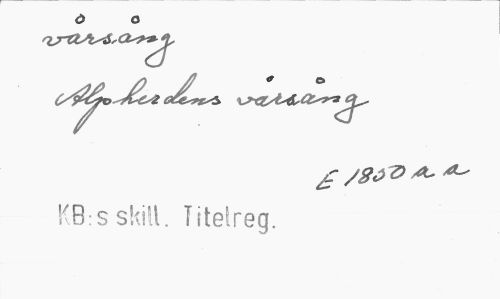 vårsång
Alpherdens vårsång
E 1850 a a
KB:s skill. Titelreg.